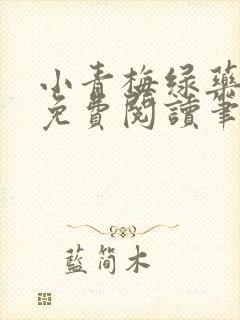 小青梅绿药
免費閱讀筆
藍简木